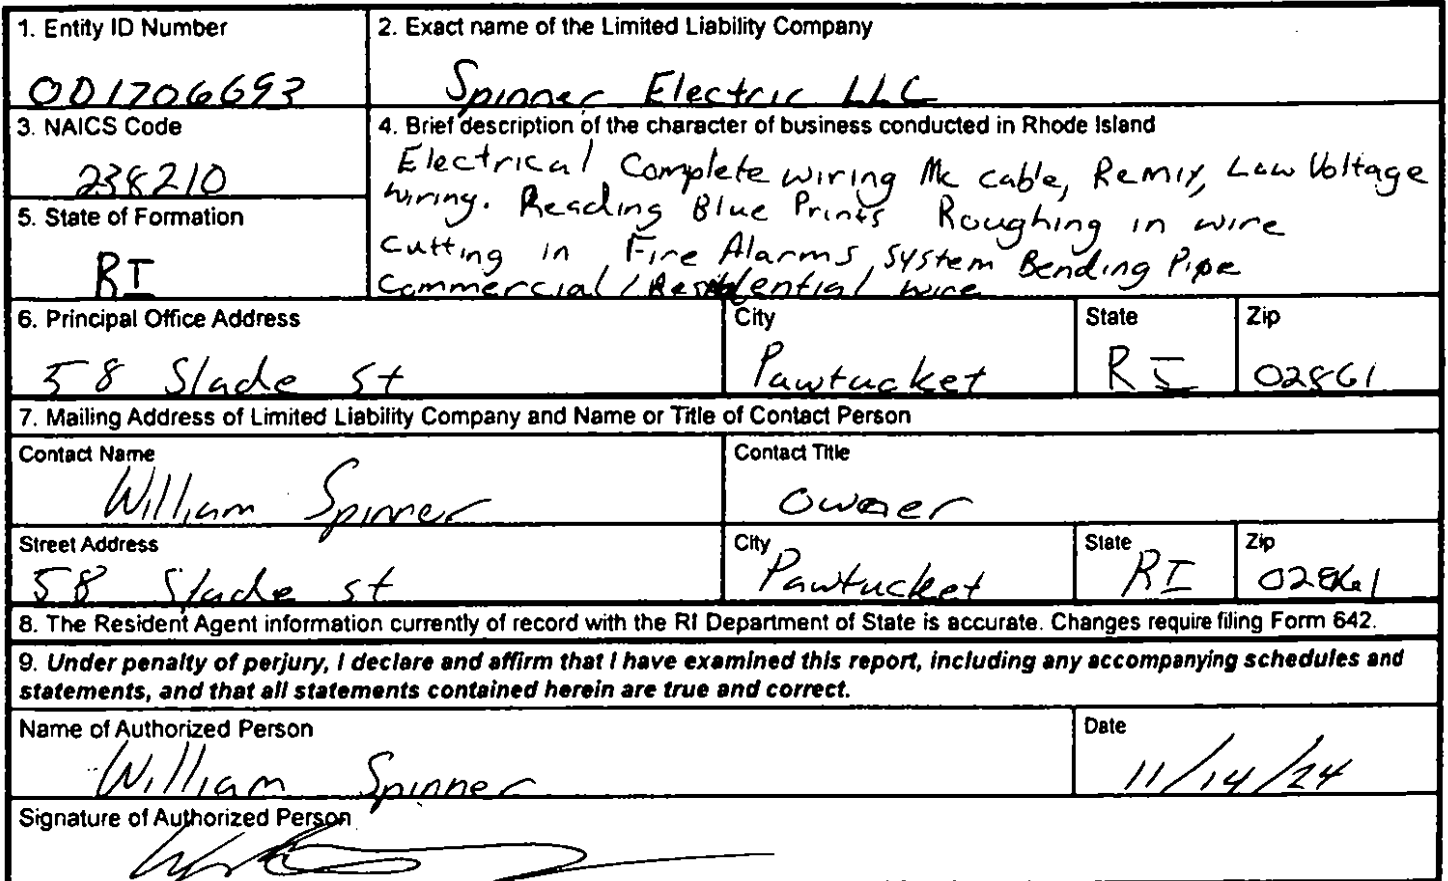 1. Entity ID Number
2. Exact name of the Limited Liability Company
001706693
Spinner Electric LLC
3. NAICS Code
238210
4. Brief description of the character of business conducted in Rhode Island
Electrical Complete wiring Mc cable, Remix, Low Voltage
wiring. Reading Blue Prints Roughing in wire
Cutting in Fire Alarms, System Bending Pipe
Commercial / Residential wire
5. State of Formation
RI
6. Principal Office Address
City
State
Zip
58 Slade St
Pawtucket
RI
02861
7. Mailing Address of Limited Liability Company and Name or Title of Contact Person
Contact Name
Contact Title
William Spinner
Owner
Street Address
City
State
Zip
58 Slade St
Pawtucket
RI
02861
8. The Resident Agent information currently of record with the RI Department of State is accurate. Changes require filing Form 642.
9. Under penalty of perjury, I declare and affirm that I have examined this report, including any accompanying schedules and
statements, and that all statements contained herein are true and correct.
Name of Authorized Person
Date
William Spinner
11/14/24
Signature of Authorized Person